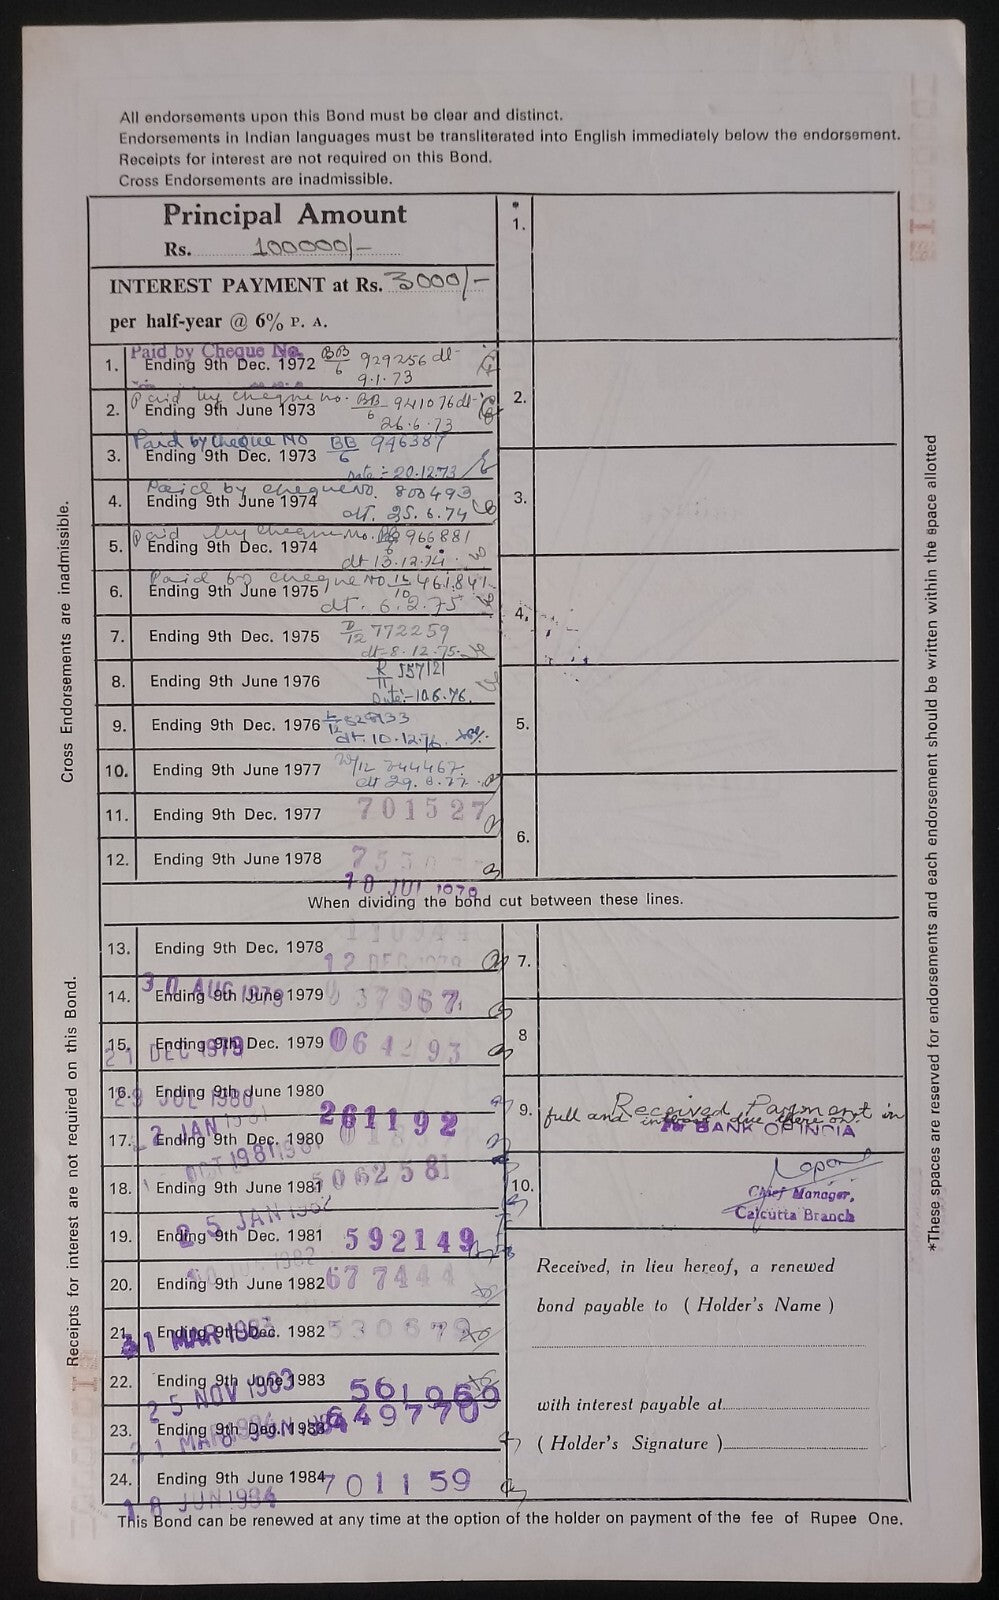 All endorsements upon this Bond must be clear and distinct.
Endorsements in Indian languages must be transliterated into English immediately below the endorsement.
Receipts for interest are not required on this Bond.
Cross Endorsements are inadmissible.
Principal Amount
Rs. 100000/-
INTEREST PAYMENT at Rs. 3000/-
per half-year @ 6% P. A.
Paid by Cheque No.
1. Ending 9th Dec. 1972 BB/6 929256 dt-
9.1.73
Paid by cheque no. BB/6 941076 dt-
2. Ending 9th June 1973
26.6.73
Paid by Cheque No BB/6 946387
3. Ending 9th Dec. 1973
Date:- 20.12.73
Paid by cheque No. 800493
4. Ending 9th June 1974
dt. 25.6.74
Paid by cheque No. 966881
5. Ending 9th Dec. 1974
dt 13.12.74
Paid by cheque No 461841
6. Ending 9th June 1975
dt. 6.2.75
7. Ending 9th Dec. 1975 772259
dt-8.12.75
8. Ending 9th June 1976 R/11 557121
Date:-10.6.76.
9. Ending 9th Dec. 1976
dt. 10.12.76
10. Ending 9th June 1977 344467
dt 29.
11. Ending 9th Dec. 1977 701527
12. Ending 9th June 1978
When dividing the bond cut between these lines.
13. Ending 9th Dec. 1978
12 DEC
30 AUG 1979
14. Ending 9th June 1979 37967
15. Ending 9th Dec. 1979
21 DEC 1979
16. Ending 9th June 1980
29 JUL 1980
261192
JAN
17. Ending 9th Dec. 1980
OCT 1981
18. Ending 9th June 1981 062581
25 JAN 1982
19. Ending 9th Dec. 1981 592149
1982
20. Ending 9th June 1982 677444
21. Ending 9th Dec. 1982 530679
31 MAR 1983
22. Ending 9th June 1983 561069
25 NOV 1983
649770
23. Ending 9th Dec. 1983
31 MAR
24. Ending 9th June 1984 701159
18 JUN 1984
*
1.
2.
3.
4.
5.
6.
7.
8
9. Received Payment in
full and interest due there on.
BANK OF INDIA
10.
Chief Manager,
Calcutta Branch
Received, in lieu hereof, a renewed
bond payable to ( Holder's Name )
with interest payable at
( Holder's Signature )
This Bond can be renewed at any time at the option of the holder on payment of the fee of Rupee One.
Cross Endorsements are inadmissible.
Receipts for interest are not required on this Bond.
*These spaces are reserved for endorsements and each endorsement should be written within the space allotted